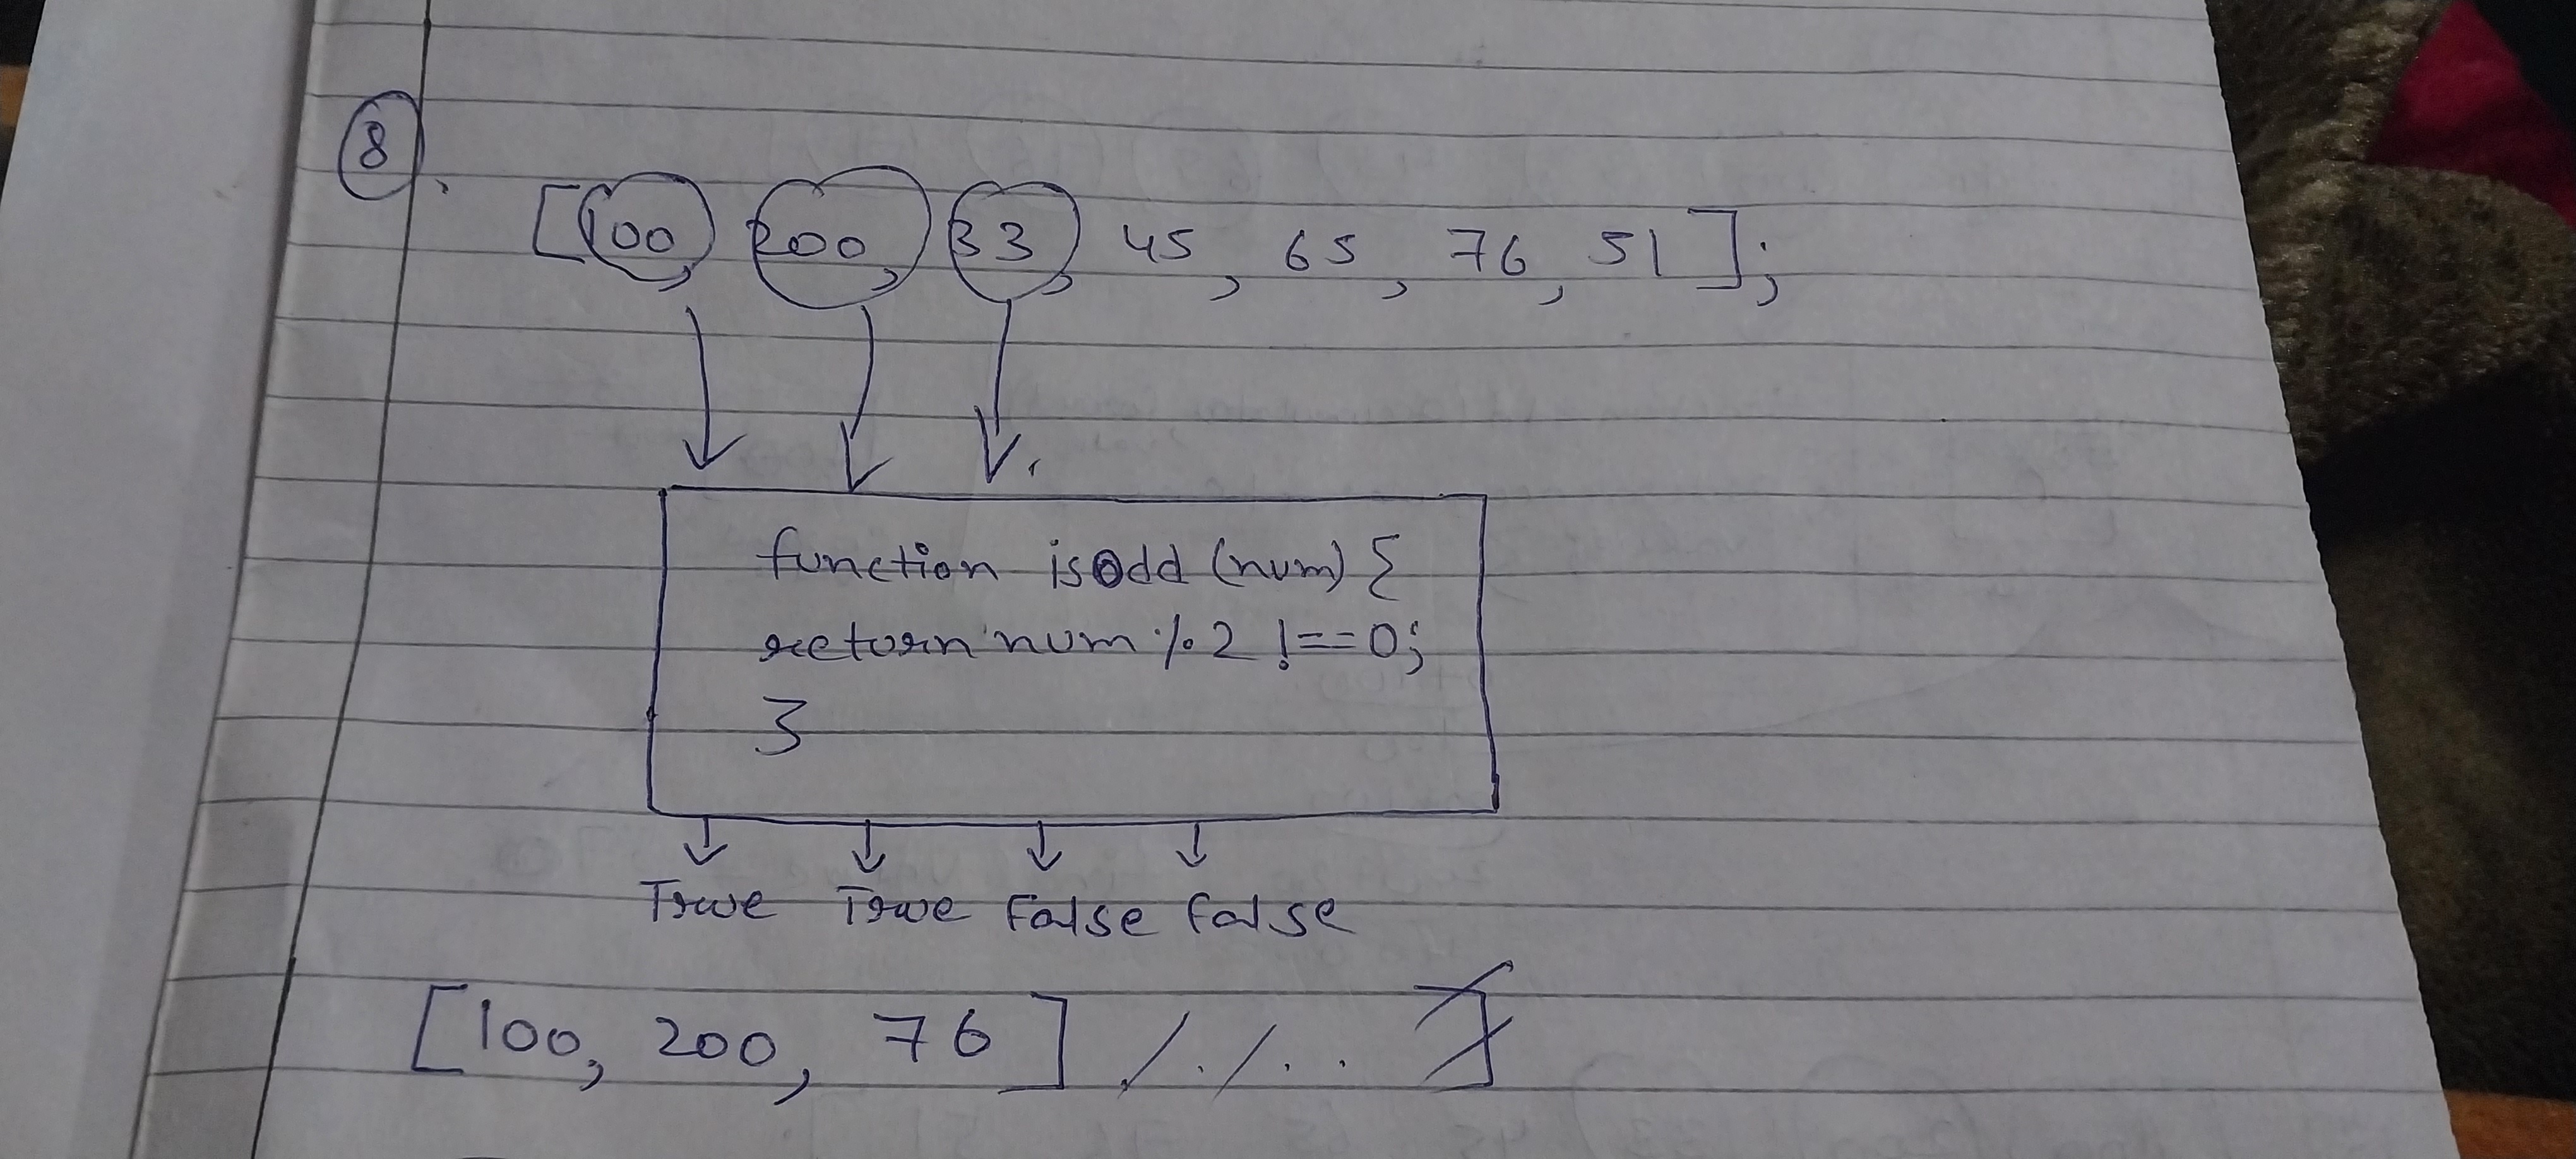 8.
[100, 200, 33, 45, 65, 76, 51];
function isOdd (num) {
return num % 2 !== 0;
}
True True False false
[100, 200, 76]